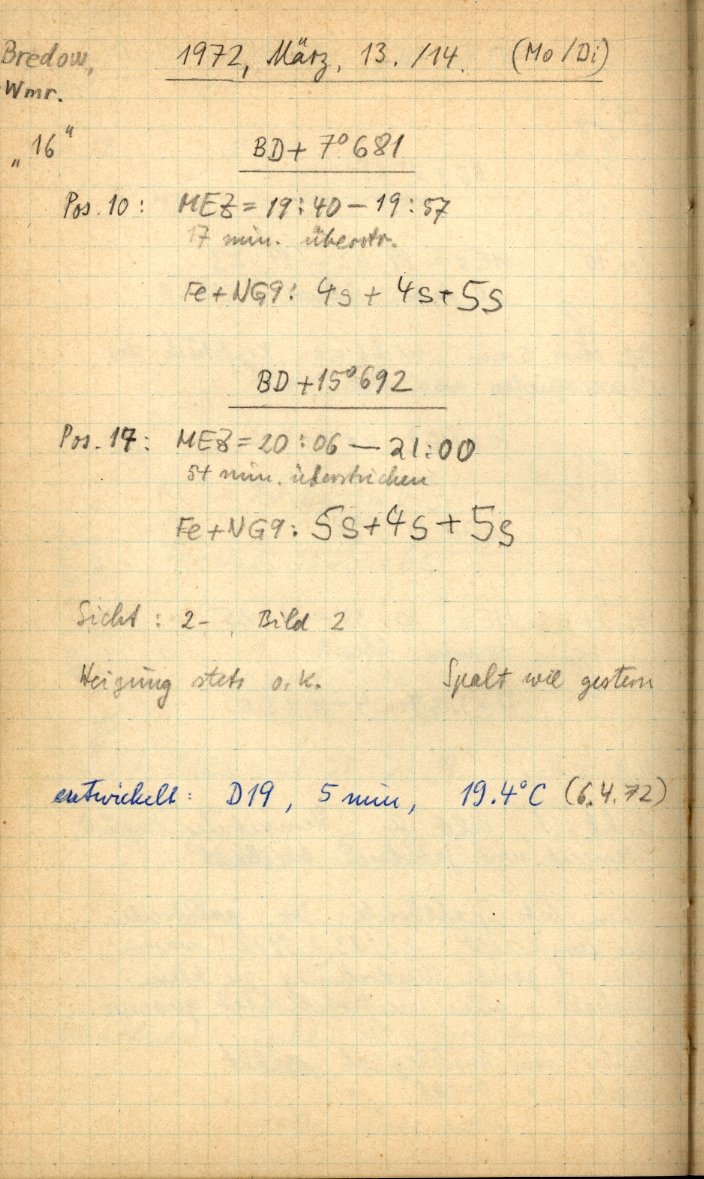 Bredow, 1972, März, 13./14. (Mo/Di)
Wmr.
„16“ BD+7°681
Pos. 10: MEZ = 19:40 – 19:57
17 min. überstr.
Fe+NG9: 4s + 4s + 5s
BD+15°692
Pos. 17: MEZ = 20:06 — 21:00
54 min. überstrichen
Fe+NG9: 5s+4s+5s
Sicht: 2- , Bild 2
Heizung stets o.k. Spalt wie gestern
entwickelt: D19, 5 min, 19.4°C (6.4.72)